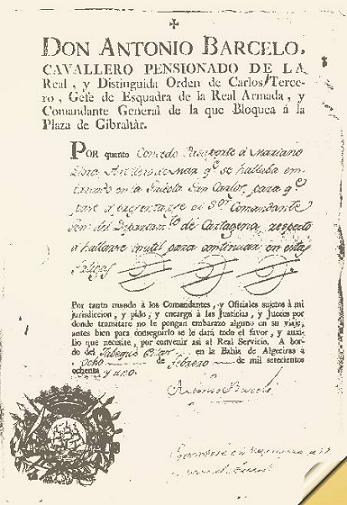 DON ANTONIO BARCELO,
CAVALLERO PENSIONADO DE LA
Real, y Distinguida Orden de Carlos Terce-
ro, Gefe de Esquadra de la Real Armada, y
Comandante General de la que Bloquea á la
Plaza de Gibraltár.
POR quanto Concedo Pasaporte á Mariano
qe. se hallaba em-
en la San Carlos, para qe.
pase á al Sor. Comandante
Gen. del Departamto. de Cartagena, respecto
á hallarse inutil para continuar en esta
Por tanto mando á los Comandantes, y Oficiales sujetos á mi
jurisdiccion, y pido, y encargo á las Justicias, y Jueces por
donde transitare no le pongan embarazo alguno en su viaje,
antes bien para conseguirlo se le dará todo el favor, y auxi-
lio que necesite, por convenir asi al Real Servicio. A bor-
do del en la Bahia de Algeciras á
ocho de Febrero de mil setecientos
ochenta y uno.
Antonio Barceló